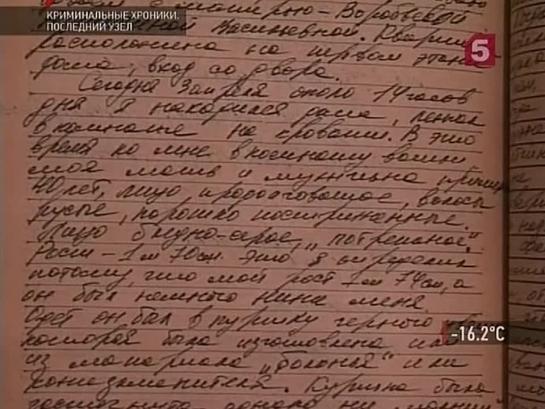 КРИМИНАЛЬНЫЕ ХРОНИКИ.
ПОСЛЕДНИЙ УЗЕЛ
5
Васильевной. Кварти
расположена на первом этаже
дома, вход со двора.
Сегодня 3 апреля около 14 часов
дня я находился дома, лежал
в комнате на кровати. В это
время ко мне в комнату вошли
моя мать и мужчина
40 лет, лицо продолговатое, волосы
русые, хорошо постриженные.
Лицо бледно-серое, „потрепаное".
Рост - 1м 70см. Это я определил
потому, что мой рост 1м 74см, а
он был немного ниже меня.
Одет он был в куртку черного
которая была изготовлена
из материала „болонья" или
кожезаменителя. Куртка была
-16.2°C